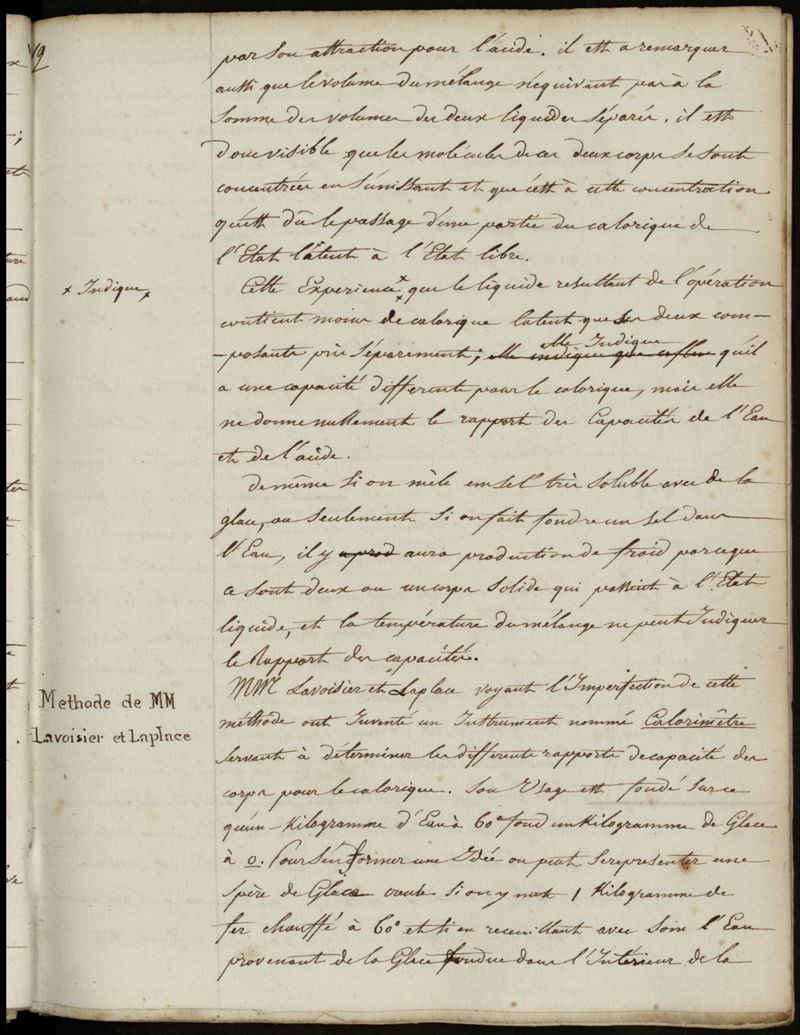 19
par son attraction pour l'acide. il est a remarquer
aussi que le volume du mélange n'equivaut pas à la
somme des volumes des deux liquides séparés. il est
donc visible que les molécules de ces deux corps se sont
concentrées en s'unissant et que c'est à cette concentration
qu'est dû le passage d'une partie du calorique de
l'Etat latent à l'Etat libre.
x Indique x
Cette Experience x que le liquide resultant de l'opération
contient moins de calorique latent que ses deux com-
-posants pris séparement; elle indique que elle Indique qu'il
a une capacité differente pour le calorique, mais elle
ne donne nullement le rapport des Capacités de l'Eau
et de l'acide.
de même si on mèle un sel très soluble avec de la
glace, ou seulement si on fait fondre un sel dans
l'Eau, il y a prod aura production de froid parceque
ce sont deux ou un corps solide qui passent à l'Etat
liquide, et la température du mélange ne peut Indiquer
le Rapport des capacités.
Methode de MM
Lavoisier et Laplace
MM Lavoisier et Laplace voyant l'Imperfection de cette
méthode ont Inventé un Instrument nommé Calorimêtre
servant à déterminer les differents rapports de capacité des
corps pour le calorique. Son Usage est fondé sur ce
qu'un Kilogramme d'Eau à 60° fond un Kilogramme de Glace
à 0. Pour s'en former une Idée on peut se representer une
spère de Glace creuse si on y met 1 Kilogramme de
fer chauffé à 60° et si en recueillant avec soin l'Eau
provenant de la Glace fondue dans l'Intérieur de la